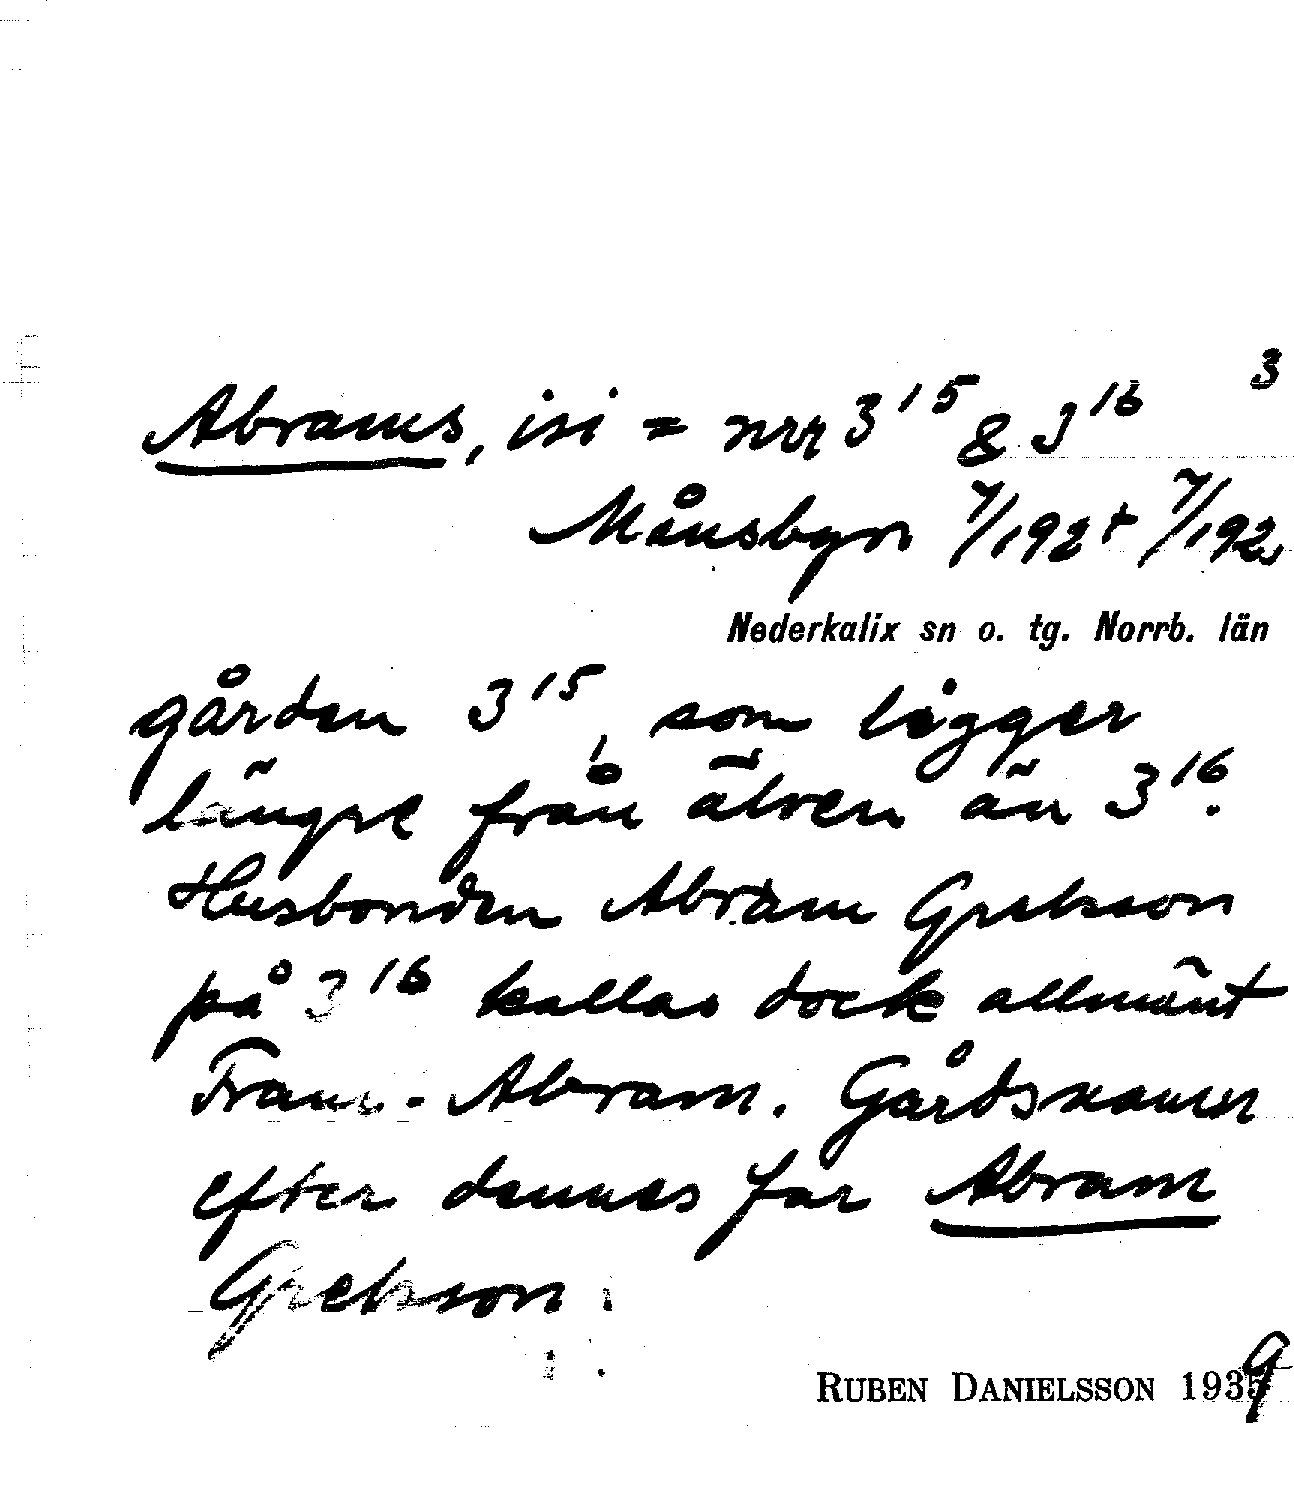 3
Abrams, isi = nrr 3¹⁵ & 3¹⁶
Månsbyn 7/192 + 7/192
Nederkalix sn o. tg. Norrb. län
gården 3¹⁵, som ligger
längre från älven än 3¹⁶.
Husbonden Abram Grekson
på 3¹⁶ kallas dock allmänt
Fram-Abram. Gårdsnamn
efter dennes far Abram
Grekson.
RUBEN DANIELSSON 1939